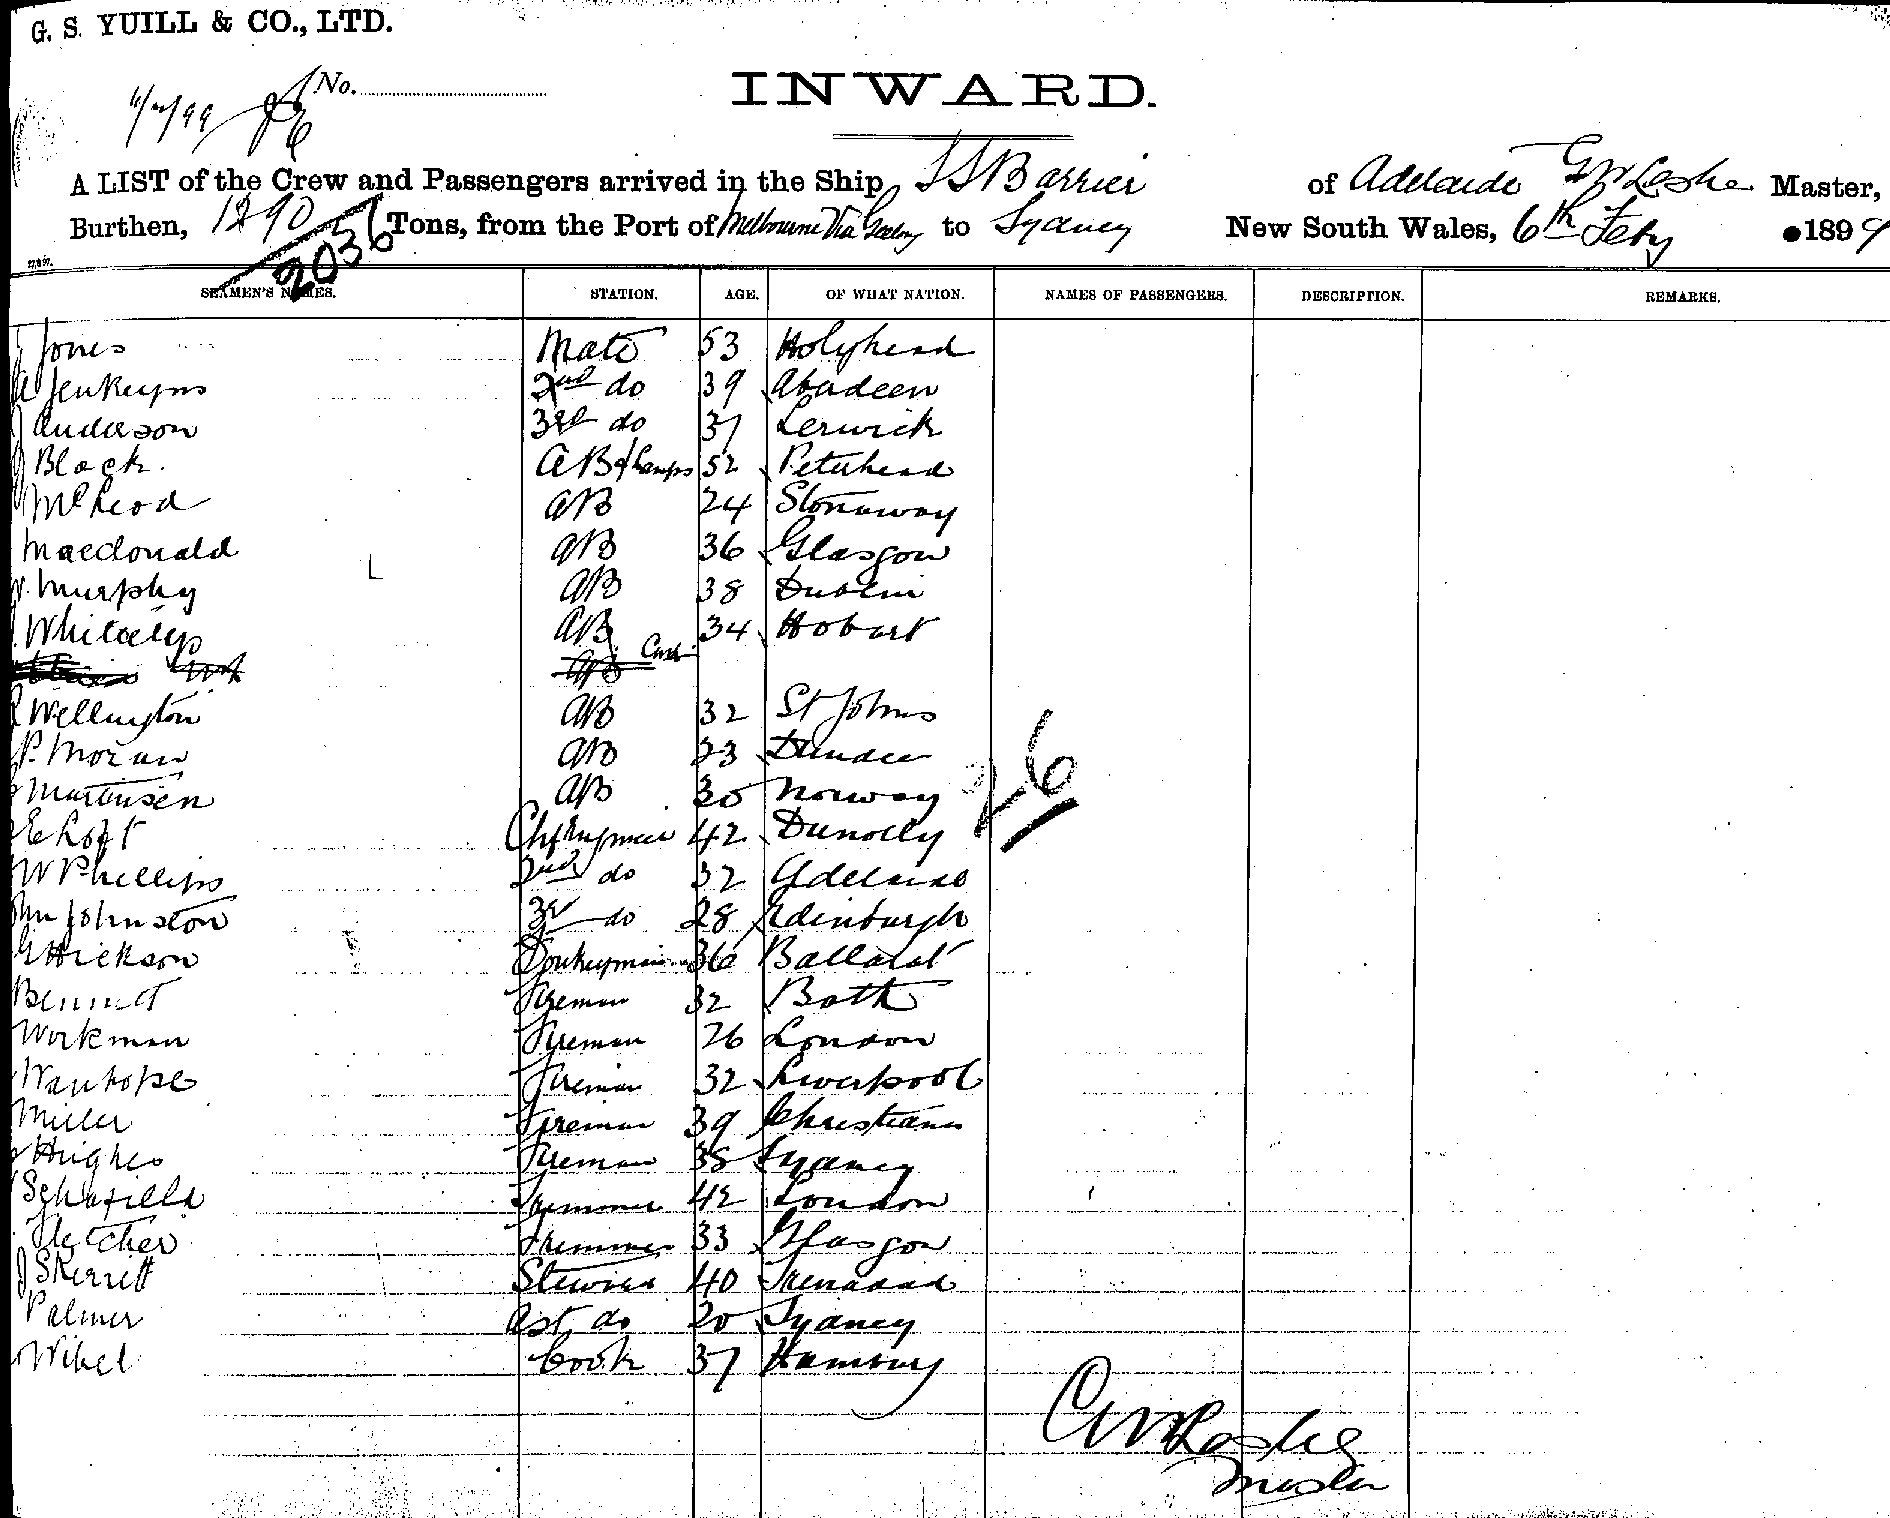 G. S. YUILL & CO., LTD.
No.
INWARD.
A LIST of the Crew and Passengers arrived in the Ship SS Barrier of Adelaide Master,
Burthen, 1290 Tons, from the Port of Melbourne Via to Sydney New South Wales, 6th Feby 1899
2036
SEAMEN'S NAMES. STATION. AGE. OF WHAT NATION. NAMES OF PASSENGERS. DESCRIPTION. REMARKS.
Jones Mate 53 Holyhead
Jenkeyns 2nd do 39 Abadeen
Anderson 3rd do 37 Lerwick
J Black. AB & Lamps 52 Peterhead
McLeod AB 24 Stornaway
Macdonald AB 36 Glasgow
Murphy AB 38 Dublin
AB 34 Hobart
AB
Wellington AB 32 St Johns
P. Moran AB 23 Dundee
Martinsen AB 30 Norway
E Loft Chf Engineer 42 Dunolly
W Phillips 2nd do 32 Adelaide
Jhn Johnston 3rd do 28 Edinburgh
Hickson Donkeyman 36 Ballarat
Bennett Fireman 32 Bath
Workman Fireman 26 London
Wauhope Fireman 32 Liverpool
Miller Fireman 39 Christiana
Hughes Fireman 38 Sydney
Schofield Trimmer 42 London
Fletcher Trimmer 33 Glasgow
J Skerrett Steward 40 Trenadad
Palmer Ast do 20 Sydney
Wibel Cook 37 Hamburg
26
Master